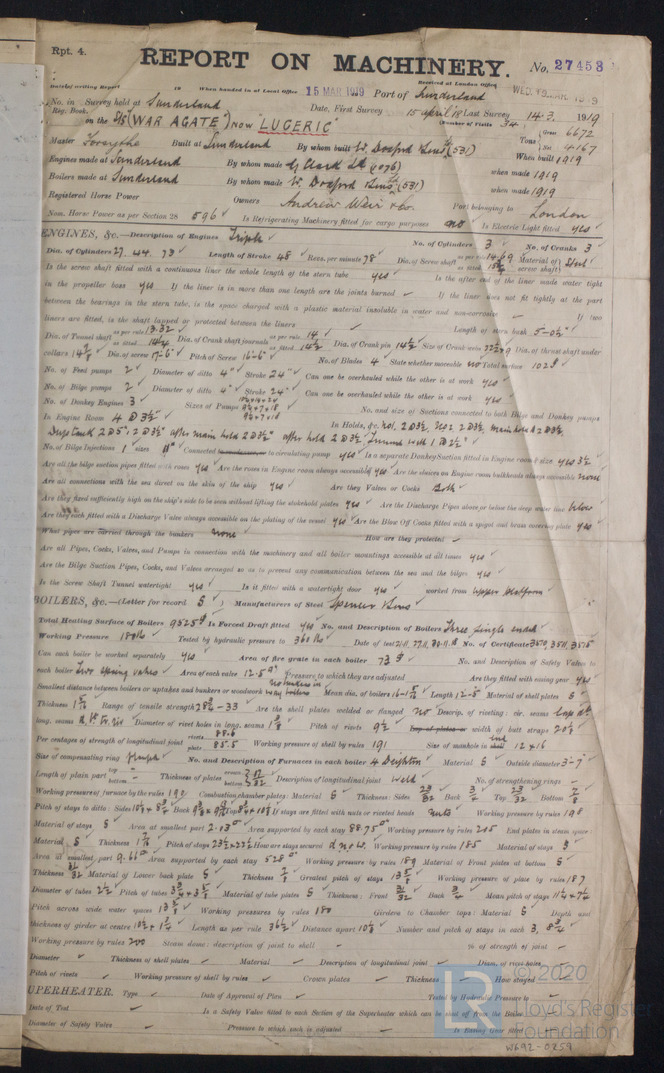 Rpt. 4.
REPORT ON MACHINERY. No. 27453
Date of writing Report 19 When handed in at Local Office 15 MAR 1919 Port of Sunderland
Received at London Office WED. 19 MAR. 1919
No. in Reg. Book. Survey held at Sunderland Date, First Survey 15 April 18 Last Survey 14.3. 1919
(Number of Visits 34
on the S/S ("WAR AGATE") now "LUGERIC" Tons Gross 6672 Net 4167
Master Forsythe Built at Sunderland By whom built W. Doxford & Sons Ld (531) When built 1919
Engines made at Sunderland By whom made G. Clark Ld (1076) when made 1919
Boilers made at Sunderland By whom made W. Doxford & Sons Ld (531) when made 1919
Registered Horse Power Owners Andrew Weir & Co. Port belonging to London
Nom. Horse Power as per Section 28 596 Is Refrigerating Machinery fitted for cargo purposes no Is Electric Light fitted yes
ENGINES, &c.—Description of Engines Triple No. of Cylinders 3 No. of Cranks 3
Dia. of Cylinders 27. 44. 73 Length of Stroke 48 Revs. per minute 78 Dia. of Screw shaft as per rule 14.69 as fitted Material of screw shaft Steel
Is the screw shaft fitted with a continuous liner the whole length of the stern tube yes Is the after end of the liner made water tight
in the propeller boss yes If the liner is in more than one length are the joints burned — If the liner does not fit tightly at the part
between the bearings in the stern tube, is the space charged with a plastic material insoluble in water and non-corrosive — If two
liners are fitted, is the shaft lapped or protected between the liners — Length of stern bush 5-0½"
Dia. of Tunnel shaft as per rule 13.32 as fitted 14¼ Dia. of Crank shaft journals as per rule 14 as fitted 14½ Dia. of Crank pin 14½ Size of Crank webs 27½ x 9 Dia. of thrust shaft under
collars 14⅝ Dia. of screw 17-6 Pitch of Screw 16-6 No. of Blades 4 State whether moveable no Total surface 102
No. of Feed pumps 2 Diameter of ditto 4" Stroke 24" Can one be overhauled while the other is at work yes
No. of Bilge pumps 2 Diameter of ditto 4" Stroke 24" Can one be overhauled while the other is at work yes
No. of Donkey Engines 3 Sizes of Pumps No. and size of Suctions connected to both Bilge and Donkey pumps
In Engine Room 4 @ 3½" In Holds, &c. No 1. 2 @ 3½, No 2 2 @ 3½, main hold 2 @ 3½,
Deep tank 2 @ 5", 2 @ 3½" after main hold 2 @ 3½" after hold 2 @ 3½" Tunnel well 1 @ 2½"
No. of Bilge Injections 1 sizes 11" Connected to circulating pump yes Is a separate Donkey Suction fitted in Engine room & size yes 3½
Are all the bilge suction pipes fitted with roses yes Are the roses in Engine room always accessible yes Are the sluices on Engine room bulkheads always accessible none
Are all connections with the sea direct on the skin of the ship yes Are they Valves or Cocks Both
Are they fixed sufficiently high on the ship's side to be seen without lifting the stokehold plates yes Are the Discharge Pipes above or below the deep water line below
Are they each fitted with a Discharge Valve always accessible on the plating of the vessel yes Are the Blow Off Cocks fitted with a spigot and brass covering plate yes
What pipes are carried through the bunkers none How are they protected —
Are all Pipes, Cocks, Valves, and Pumps in connection with the machinery and all boiler mountings accessible at all times yes
Are the Bilge Suction Pipes, Cocks, and Valves arranged so as to prevent any communication between the sea and the bilges yes
Is the Screw Shaft Tunnel watertight yes Is it fitted with a watertight door yes worked from Upper platform
BOILERS, &c.—(Letter for record S) Manufacturers of Steel Spencer & Sons
Total Heating Surface of Boilers 9525 Is Forced Draft fitted yes No. and Description of Boilers Three single ended
Working Pressure 180 lbs Tested by hydraulic pressure to 360 lbs Date of test No. of Certificate
Can each boiler be worked separately yes Area of fire grate in each boiler 73 No. and Description of Safety Valves to
each boiler Two spring valves Area of each valve 12.5 Pressure to which they are adjusted Are they fitted with easing gear yes
Smallest distance between boilers or uptakes and bunkers or woodwork Mean dia. of boilers 16-1 Length 12-0 Material of shell plates S
Thickness Range of tensile strength 28¾-33 Are the shell plates welded or flanged no Descrip. of riveting: cir. seams lap
long. seams Diameter of rivet holes in long. seams Pitch of rivets 9½ Lap of plates or width of butt straps
Per centages of strength of longitudinal joint rivets 88.6 plate 85.5 Working pressure of shell by rules 191 Size of manhole in end 12 x 16
Size of compensating ring flanged No. and Description of Furnaces in each boiler 4 Deighton Material S Outside diameter 3-7
Length of plain part top bottom Thickness of plates crown bottom Description of longitudinal joint weld No. of strengthening rings —
Working pressure of furnace by the rules 190 Combustion chamber plates: Material S Thickness: Sides 23/32 Back 3/4 Top 23/32 Bottom 7/8
Pitch of stays to ditto: Sides Back Top If stays are fitted with nuts or riveted heads nuts Working pressure by rules 198
Material of stays S Area at smallest part 2.03 Area supported by each stay 88.75 Working pressure by rules 205 End plates in steam space:
Material S Thickness Pitch of stays How are stays secured d. n. & w. Working pressure by rules 185 Material of stays S
Area at smallest part 9.66 Area supported by each stay 528 Working pressure by rules 189 Material of Front plates at bottom S
Thickness 31/32 Material of Lower back plate S Thickness Greatest pitch of stays Working pressure of plate by rules 187
Diameter of tubes 2½ Pitch of tubes Material of tube plates S Thickness: Front 31/32 Back 3/4 Mean pitch of stays
Pitch across wide water spaces Working pressures by rules 180 Girders to Chamber tops: Material S Depth and
thickness of girder at centre Length as per rule 36½ Distance apart 10½ Number and pitch of stays in each 3, 8¾
Working pressure by rules 200 Steam dome: description of joint to shell — % of strength of joint —
Diameter Thickness of shell plates Material Description of longitudinal joint Diam. of rivet holes
Pitch of rivets Working pressure of shell by rules Crown plates Thickness How stayed
SUPERHEATER. Type Date of Approval of Plan Tested by Hydraulic Pressure to
Date of Test Is a Safety Valve fitted to each Section of the Superheater which can be shut off from the Boiler
Diameter of Safety Valve Pressure to which each is adjusted Is Easing Gear fitted
© 2020
Lloyd's Register
Foundation
W692-0259